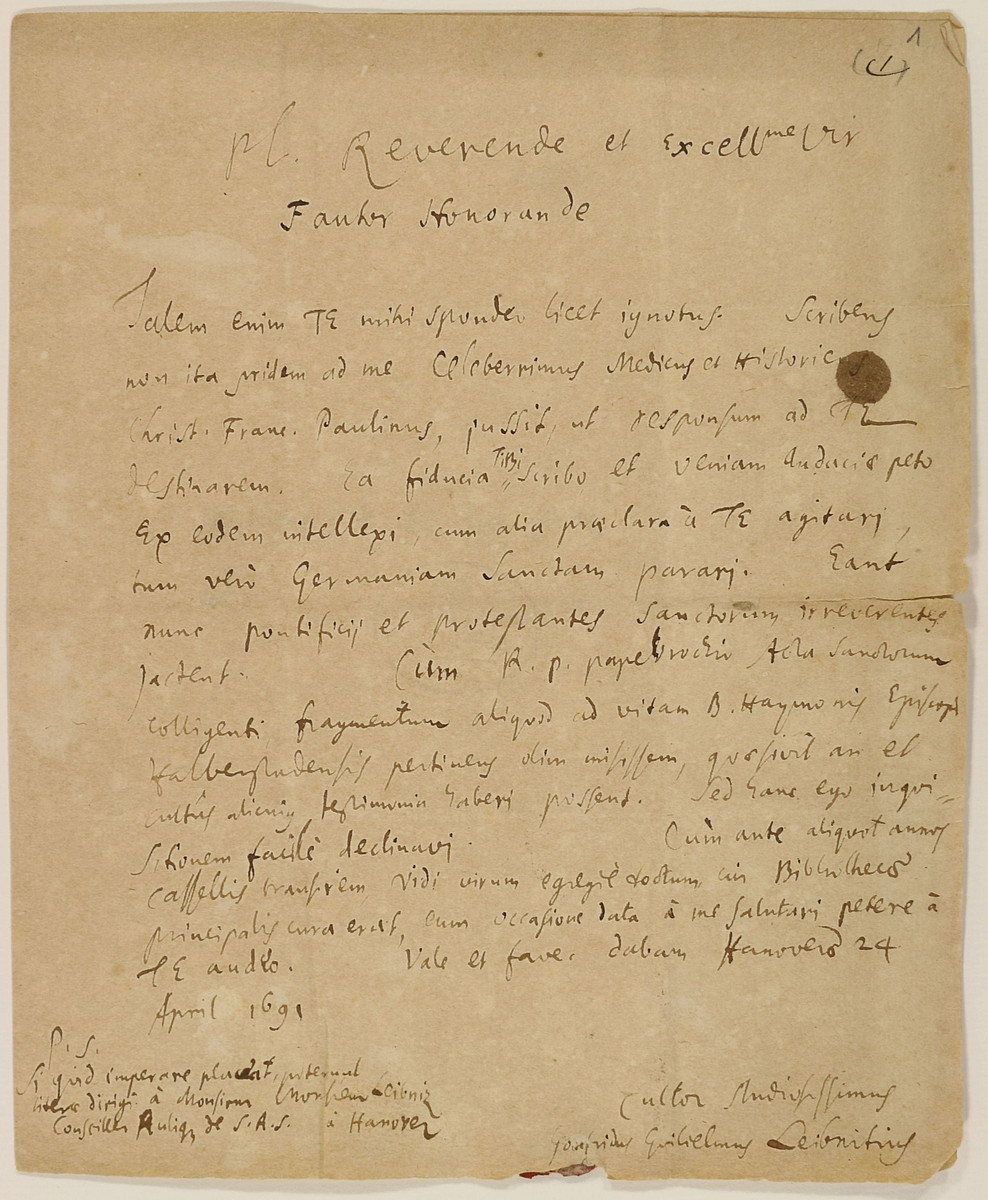 1
(1)
Pl. Reverende et Excell^me Vir
Fautor Honorande
Talem enim TE mihi spondeo licet ignotus. Scribens
non ita pridem ad me Celeberrimus Medicus et Historicus
Christ. Franc. Paulinus, jussit, ut responsum ad TE
destinarem. Ea fiducia Tibi scribo et veniam audaciæ peto
Ex eodem intellexi, cum alia præclara à TE agitari,
tum verò Germaniam Sanctam parari. Eant
nunc pontificij et protestantes Sanctorum irreverentes
jactent. Cùm R. P. Papebrochio Acta Sanctorum
colligenti, fragmentum aliquod ad vitam B. Haymonis Episcopi
Halberstadensis pertinens olim misissem, quæsivit an et
cultûs alicujus testimonia haberi possent. Sed hanc ego inqui=
sitionem facilè declinavi. Cùm ante aliquot annos
Cassellis transirem vidi virum egregiè doctum, cui Bibliothecæ
principalis cura erat, eum occasione data à me salutari petere à
TE audeo. Vale et fave. dabam Hanoveræ 24
April 1691
P. S.
Si quid imperare placeat, poterunt
literæ dirigi à Monsieur Monsieur Leibniz
Conseiller Aulique de S.A.S. à Hanover
Cultor studiosissimus
Gotfridus Guilielmus Leibnitius